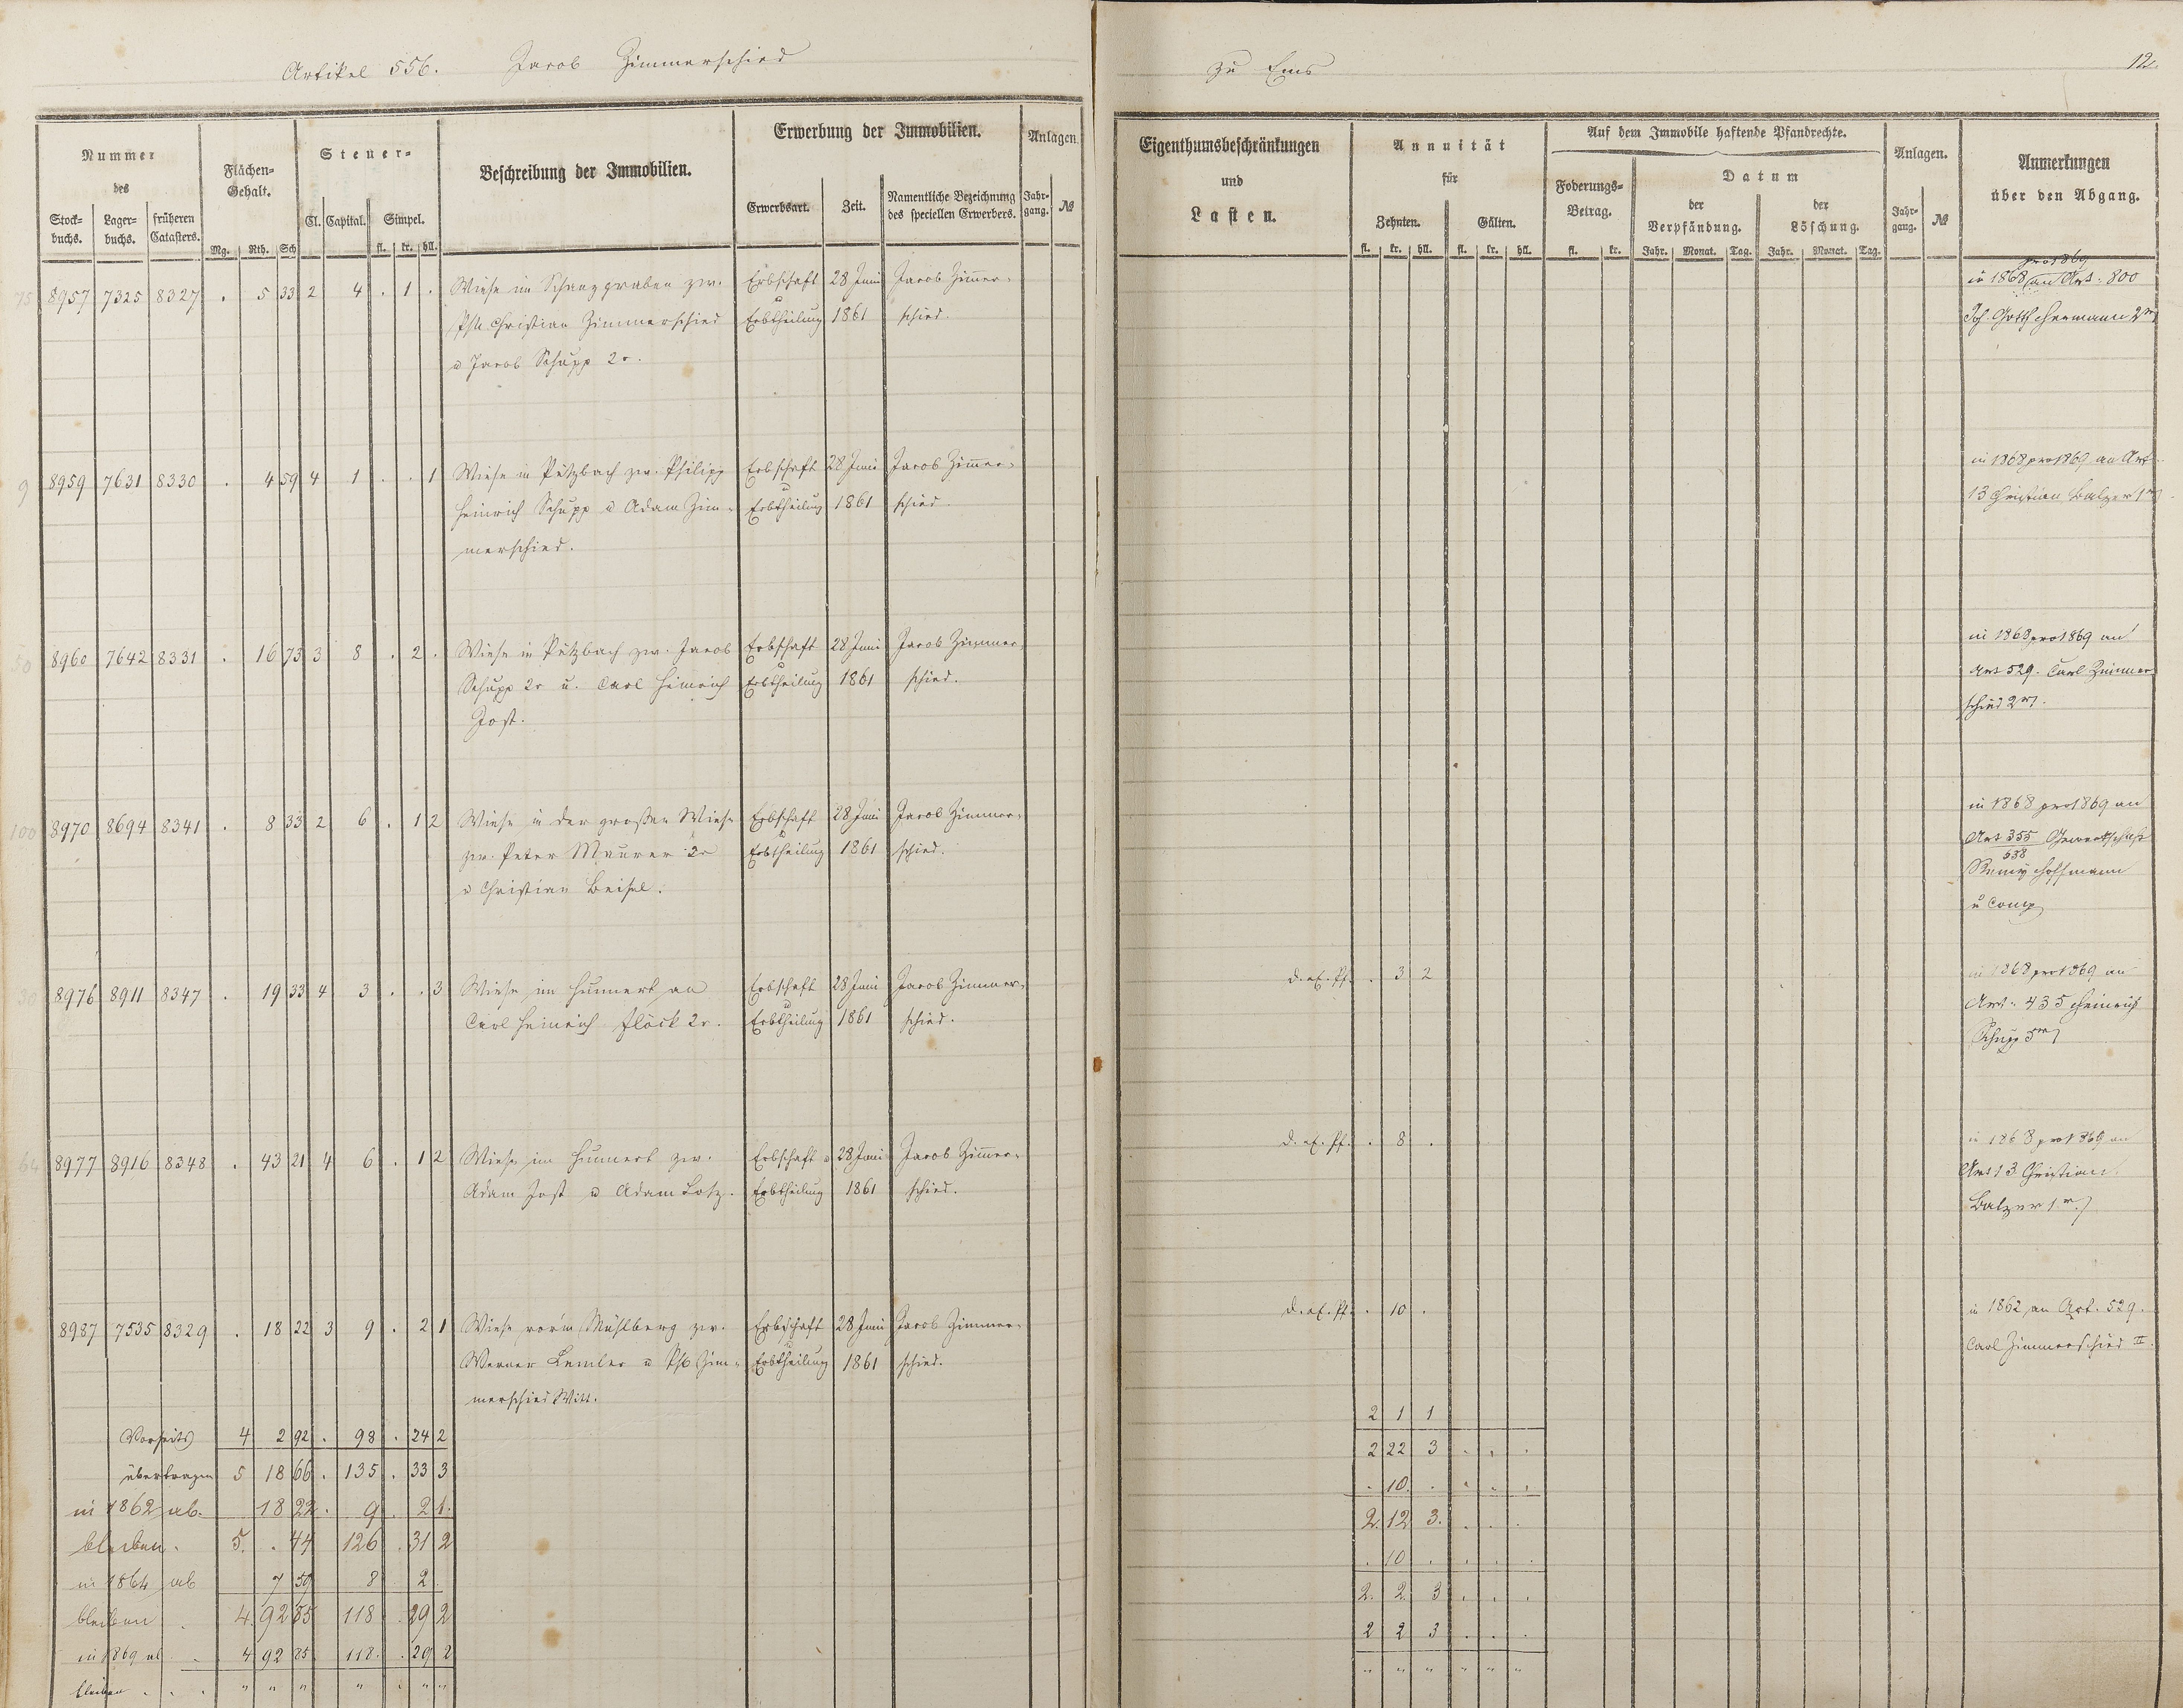 Artikel 556. Jacob Zimmerschied
zu Ems
12.
Nummer des
Stockbuchs. Lagerbuchs. früheren Catasters.
Flächen-Gehalt.
Mg. Rth. Sch
Steuer-
Cl. Capital. Simpel.
fl. kr. hll.
Beschreibung der Immobilien.
Erwerbung der Immobilien.
Erwerbsart. Zeit. Namentliche Bezeichnung des speciellen Erwerbers.
Anlagen.
Jahrgang. №
Eigenthumsbeschränkungen und Lasten.
Annuität für
Zehnten. Gülten.
fl. kr. hll. fl. kr. hll.
Auf dem Immobile haftende Pfandrechte.
Foderungs-Betrag.
fl. kr.
Datum
der Verpfändung. der Löschung.
Jahr. Monat. Tag. Jahr. Monat. Tag.
Anlagen.
Jahrgang. №
Anmerkungen über den Abgang.
75 8957 7325 8327 . 5 33 2 4 . 1 . Wiese im Schanzgraben zw. Erbschaft 28 Juni Jacob Zimer- in 1868 pro 1869 an Art: 800
Phil Christian Zimmerschied Erbtheilung 1861 schied. Joh. Gottf Hermann 2r
u Jacob Schupp 2r.
9 8959 7631 8330 . 4 59 4 1 . . 1 Wiese in Pützbach zw. Philipp Erbschaft 28 Juni Jacob Zimer- in 1868 pro 1869 an Art
Heinrich Schupp u Adam Zim- Erbtheilung 1861 schied. 13 Christian Balzer 1r
merschied.
8960 7642 8331 . 16 73 3 8 . 2 . Wiese in Pützbach zw. Jacob Erbschaft 28 Juni Jacob Zimmer- in 1868 pro 1869 an
Schupp 2r u. Carl Heinrich Erbtheilung 1861 schied. Art 529. Carl Zimmer
Jost. schied 2r.
100 8970 8694 8341 . 8 33 2 6 . 1 2 Wiese in der großen Wiese Erbschaft 28 Juni Jacob Zimmer- in 1868 pro 1869 an
zw. Peter Maurer 2r Erbtheilung 1861 schied. Art 355 Gewerkschaft
538
u Christian Beisel. Remy Hoffmann
u Comp
30 8976 8911 8347 . 19 33 4 3 . . 3 Wiese im Hunnert an Erbschaft 28 Juni Jacob Zimmer- . 3 2 in 1868 pro 1869 an
Carl Heinrich Flöck 2r. Erbtheilung 1861 schied. Art: 435 Heinrich
Schupp 5r
64 8977 8916 8348 . 43 21 4 6 . 1 2 Wiese im Hunnert zw. Erbschaft u 28 Juni Jacob Zimer- . 8 . in 1868 pro 1869 an
Adam Jost u Adam Lotz. Erbtheilung 1861 schied. Art 13 Christian
Balzer 1r.
8987 7535 8329 . 18 22 3 9 . 2 1 Wiese vor'm Mühlberg zw. Erbschaft 28 Juni Jacob Zimmer- . 10 . in 1862 an Art. 529.
Werner Lemler u Ph Zim- Erbtheilung 1861 schied. Carl Zimmerschied II.
merschied Witt.
Vorseits 4 2 92 . 98 . 24 2 2 1 1
übertragen 5 18 66 . 135 . 33 3 2 22 3 . . .
in 1862 ab. 18 22 . 9 . 2 1. . 10. . . . .
bleiben. 5. . 44 126 . 31 2 2. 12 3. . . .
in 1864 ab 7 59 8 2 . . 10 . . . .
bleiben 4. 92 85 118 . 29 2 2. 2. 3 . . .
in 1869 ab 4 92 85 118. . 29 2 2 2 3 . . .
bleiben . . . " " " " " " " " " " " " "